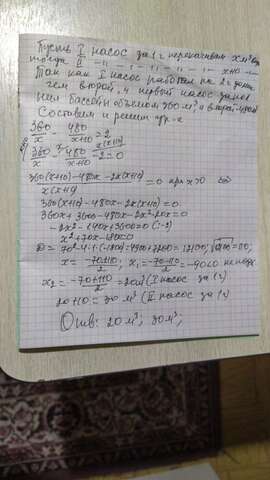 Пусть I насос за 1 ч перекачивает x м³ в,
тогда II —"— —"— —"— x+10 —"—
Так как I насос работал на 2 ч доль
чем второй, и первый насос запол
нил бассейн объёмом 360 м³, а второй-480м³
Составим и решим ур-е
360/x - 480/x+10 = 2
360/x - 480/x+10 - 2 = 0
360(x+10)-480x-2x(x+10) / x(x+10) = 0 при x>0
360(x+10)-480x-2x(x+10)=0
360x+3600-480x-2x²-20x=0
-2x²-140x+3600=0 (:-2)
x²+70x-1800=0
D=70²-4·1·(-1800)=4900+7200=12100; √12100=110;
x = -70±110/2, x₁ = -70-110/2 = -90<0 не подх.
x₂ = -70+110/2 = 20м³ (I насос за 1ч)
20+10 = 30 м³ (II насос за 1ч)
Отв: 20 м³; 30м³;